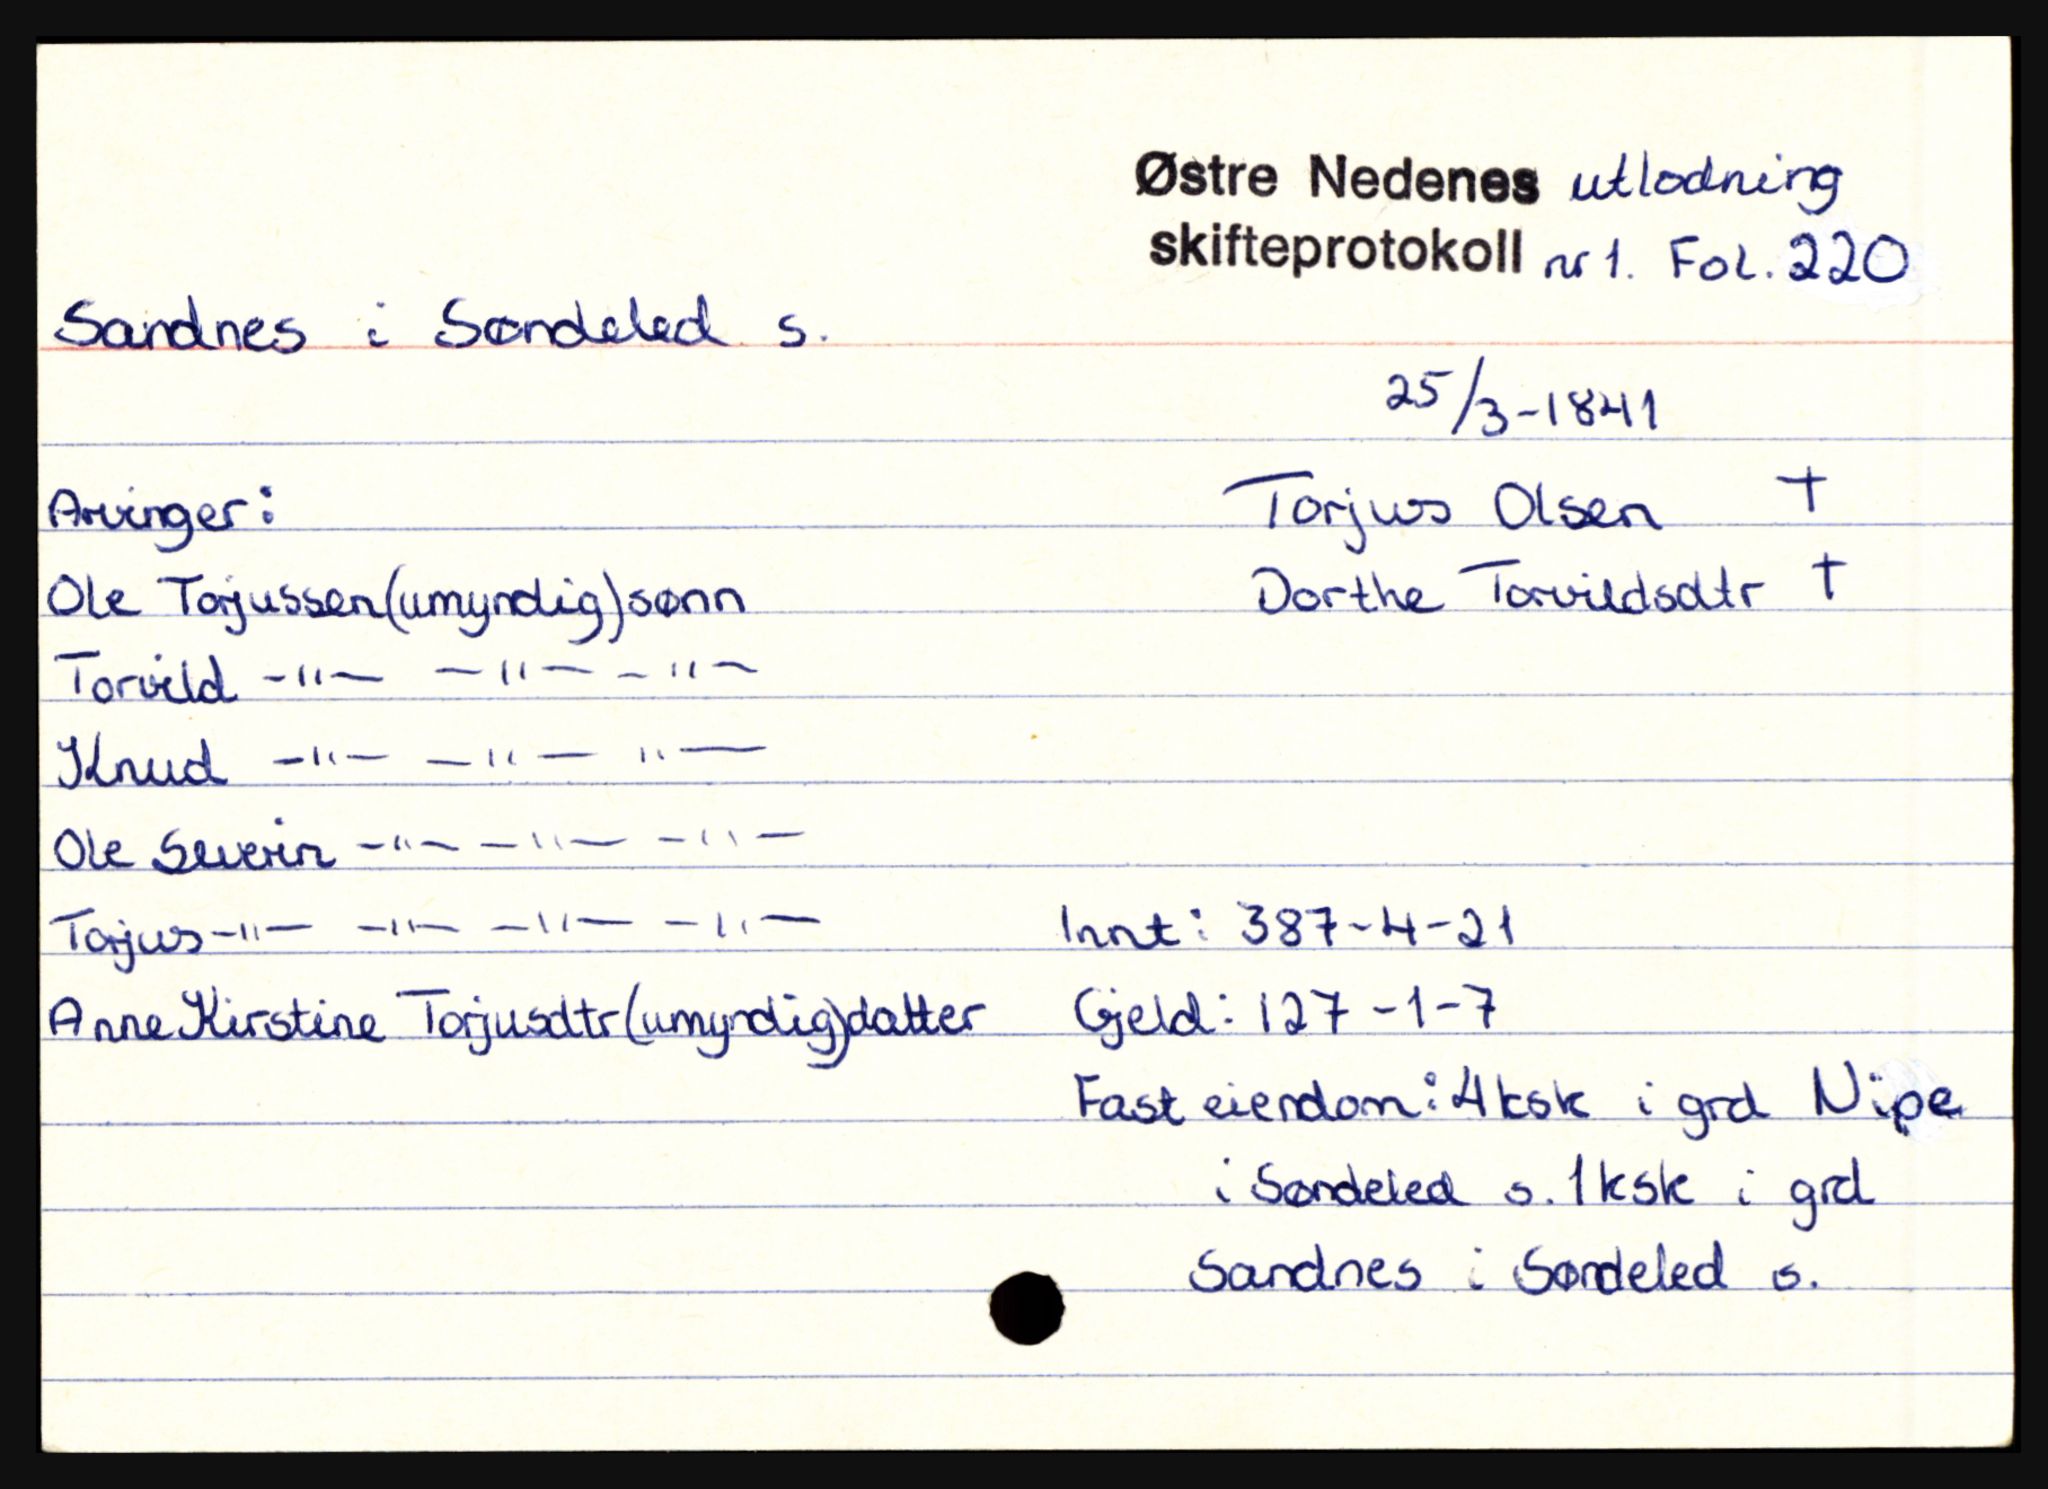 Østre Nedenes utlodning
skifteprotokoll nr 1. Fol. 220
Sandnes i Søndeled s.
25/3-1841
Arvinger:
Torjus Olsen †
Ole Torjussen (umyndig) sønn
Dorthe Torvildsdtr †
Torvild -"- -"- -"-
Knud -"- -"- "-
Ole Severin -"- -"- -"-
Torjus -"- -"- -"- -"-
Innt: 387-4-21
Anne Kirstine Torjusdtr (umyndig) datter
Gjeld: 127-1-7
Fast eiendom: 4 ksk i grd Nipe
i Søndeled s. 1 ksk i grd
Sandnes i Søndeled s.